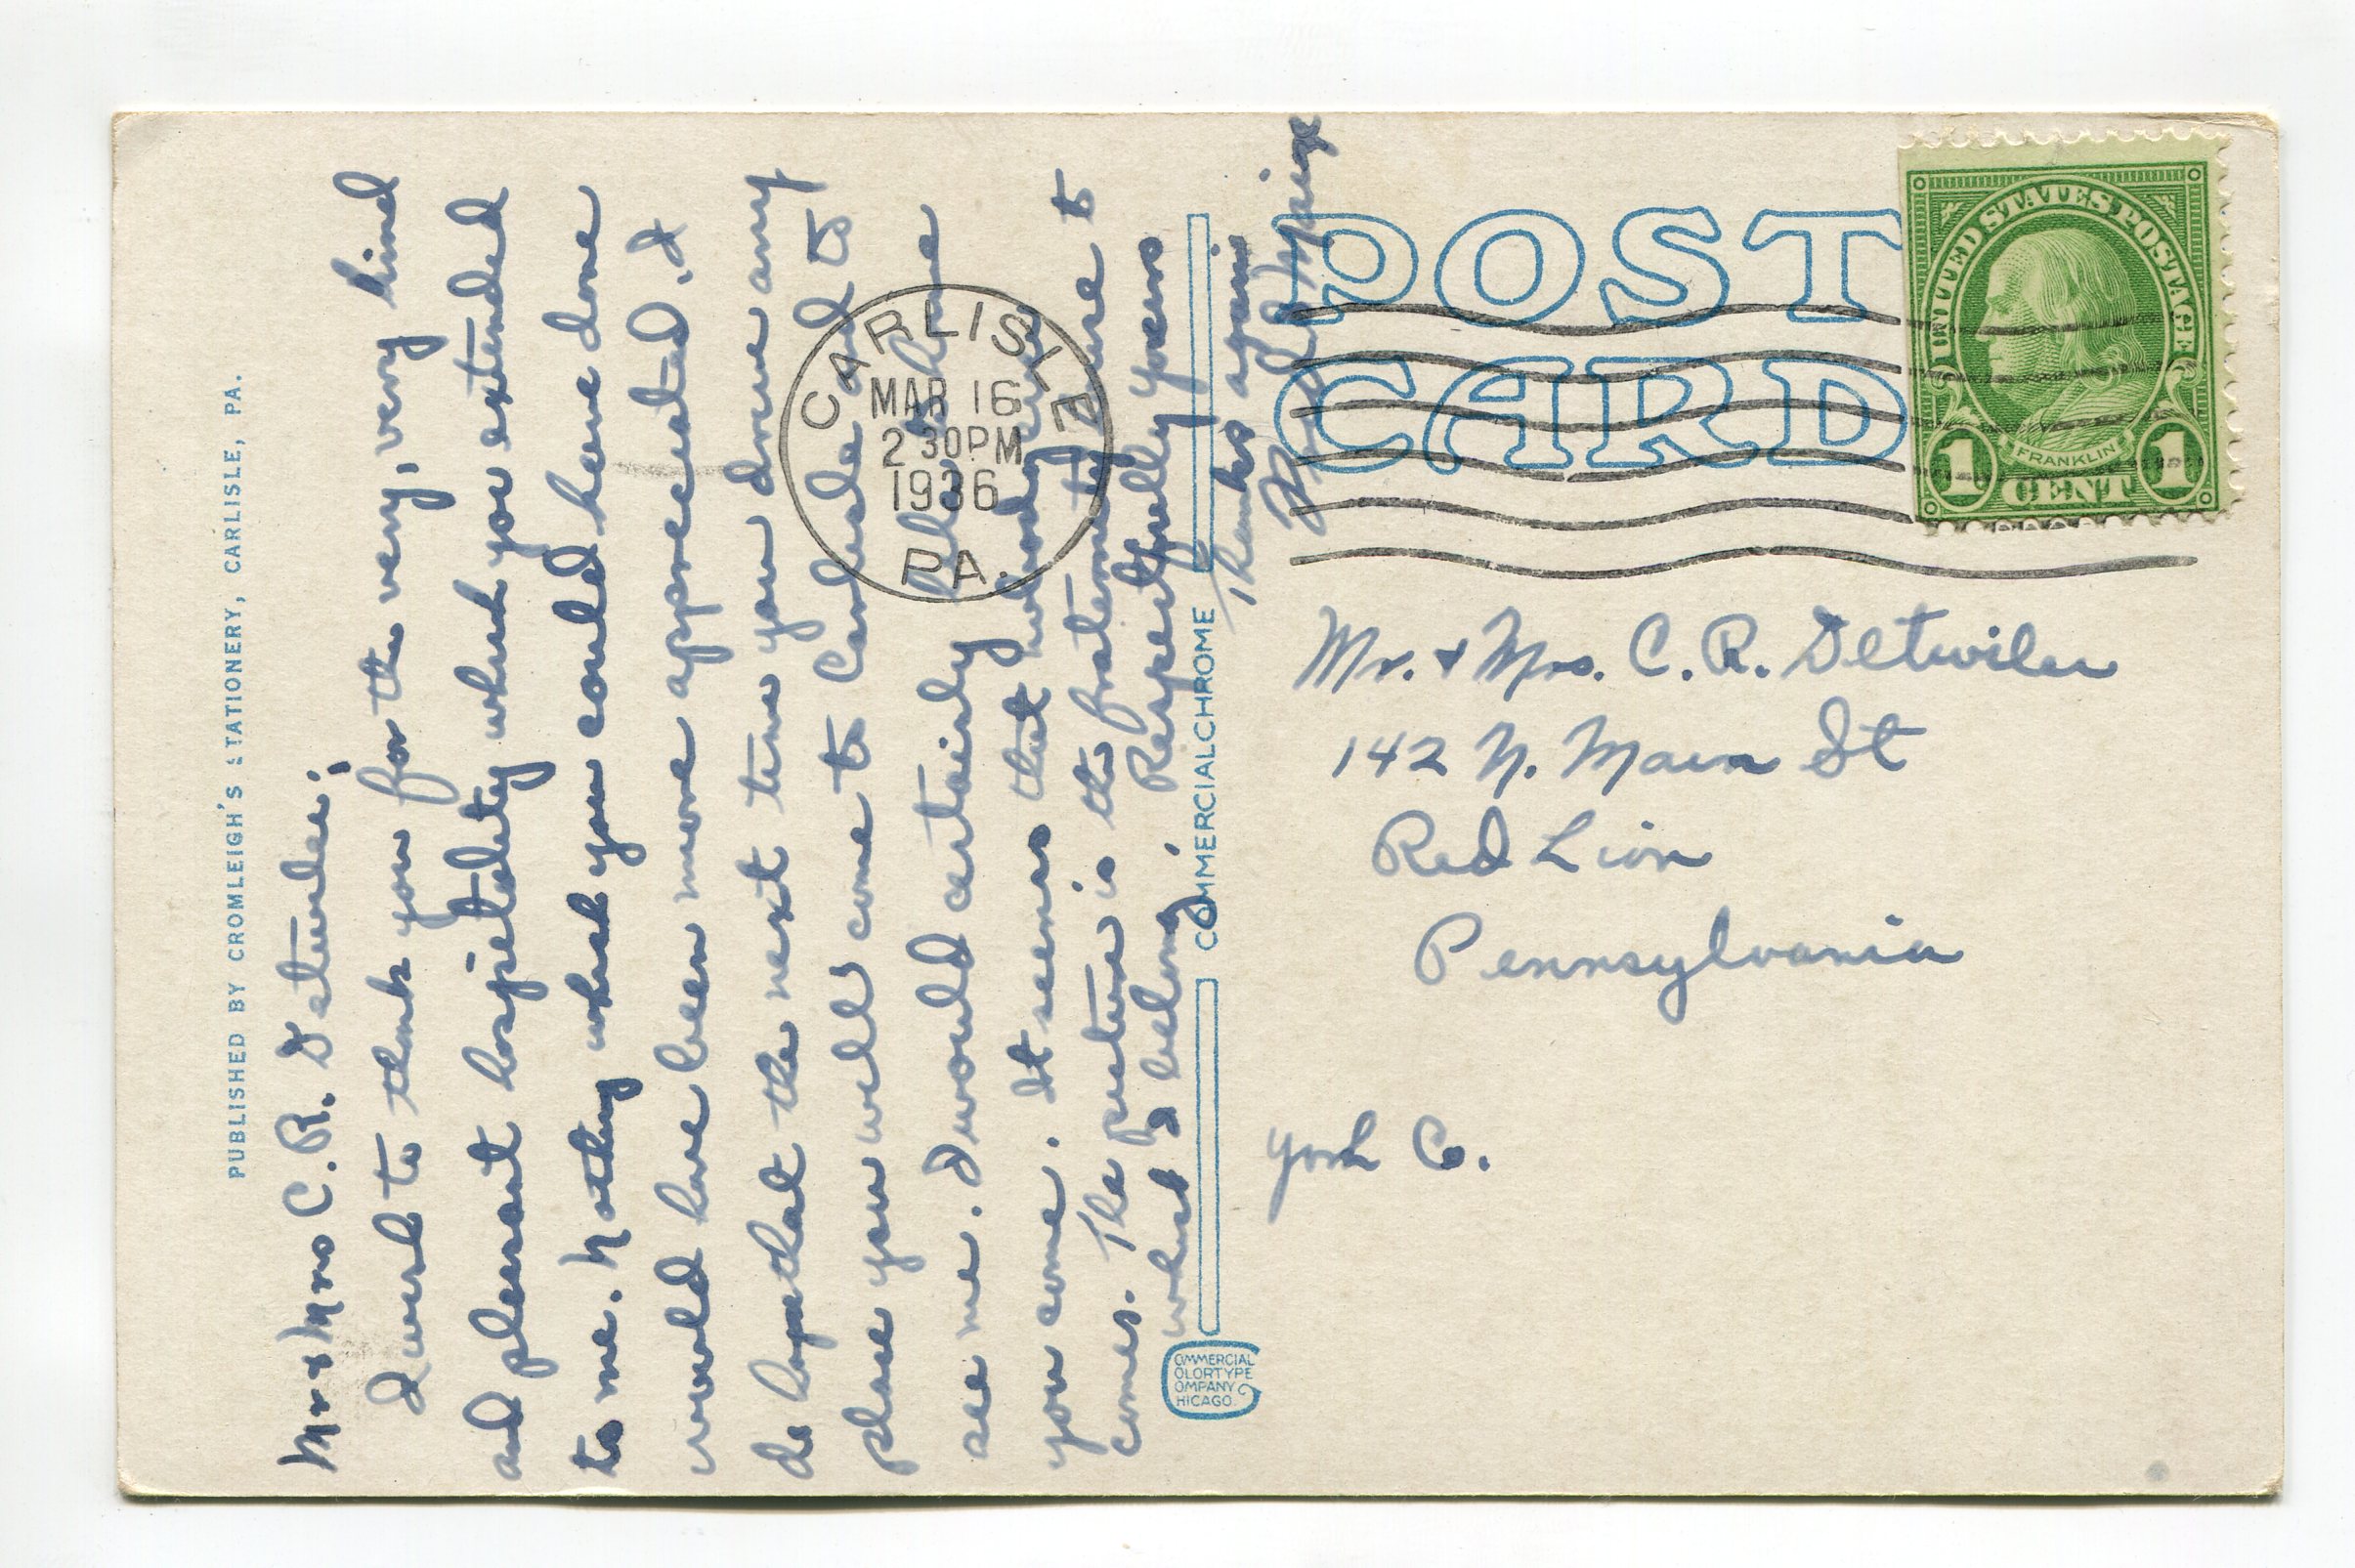 PUBLISHED BY CROMLEIGH'S STATIONERY, CARLISLE, PA.
Mr & Mrs C. R. Detwiler;
I wish to thank you for the very, very kind
and pleasant hospitality which you extended
to me. Nothing which you could have done
would have been more appreciated. I
do hope that the next time you drive any
place you will come to Carlisle and to
see me. I would certainly
you come. It seems that nobody ever
comes. The picture is the fraternity house to
which I belong. Respectfully yours
Thanks again
COMMERCIALCHROME
COMMERCIAL
COLORTYPE
COMPANY
CHICAGO
POST
CARD
CARLISLE
MAR 16
2 30PM
1936
PA.
UNITED STATES POSTAGE
FRANKLIN
1 CENT 1
Mr. & Mrs. C. R. Detwiler
142 N. Main St
Red Lion
Pennsylvania
York Co.